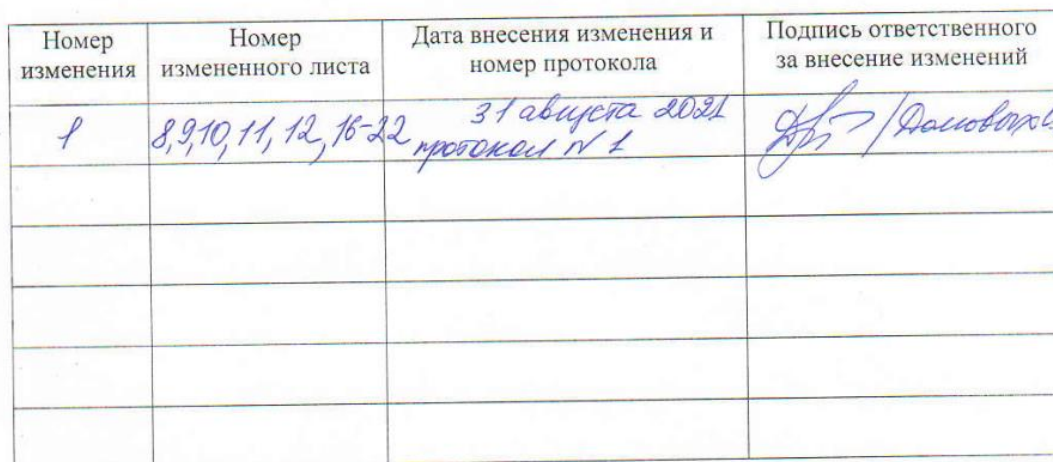 Номер изменения
Номер измененного листа
Дата внесения изменения и номер протокола
Подпись ответственного за внесение изменений
1
8,9,10,11,12,16-22
31 августа 2021
протокол № 1